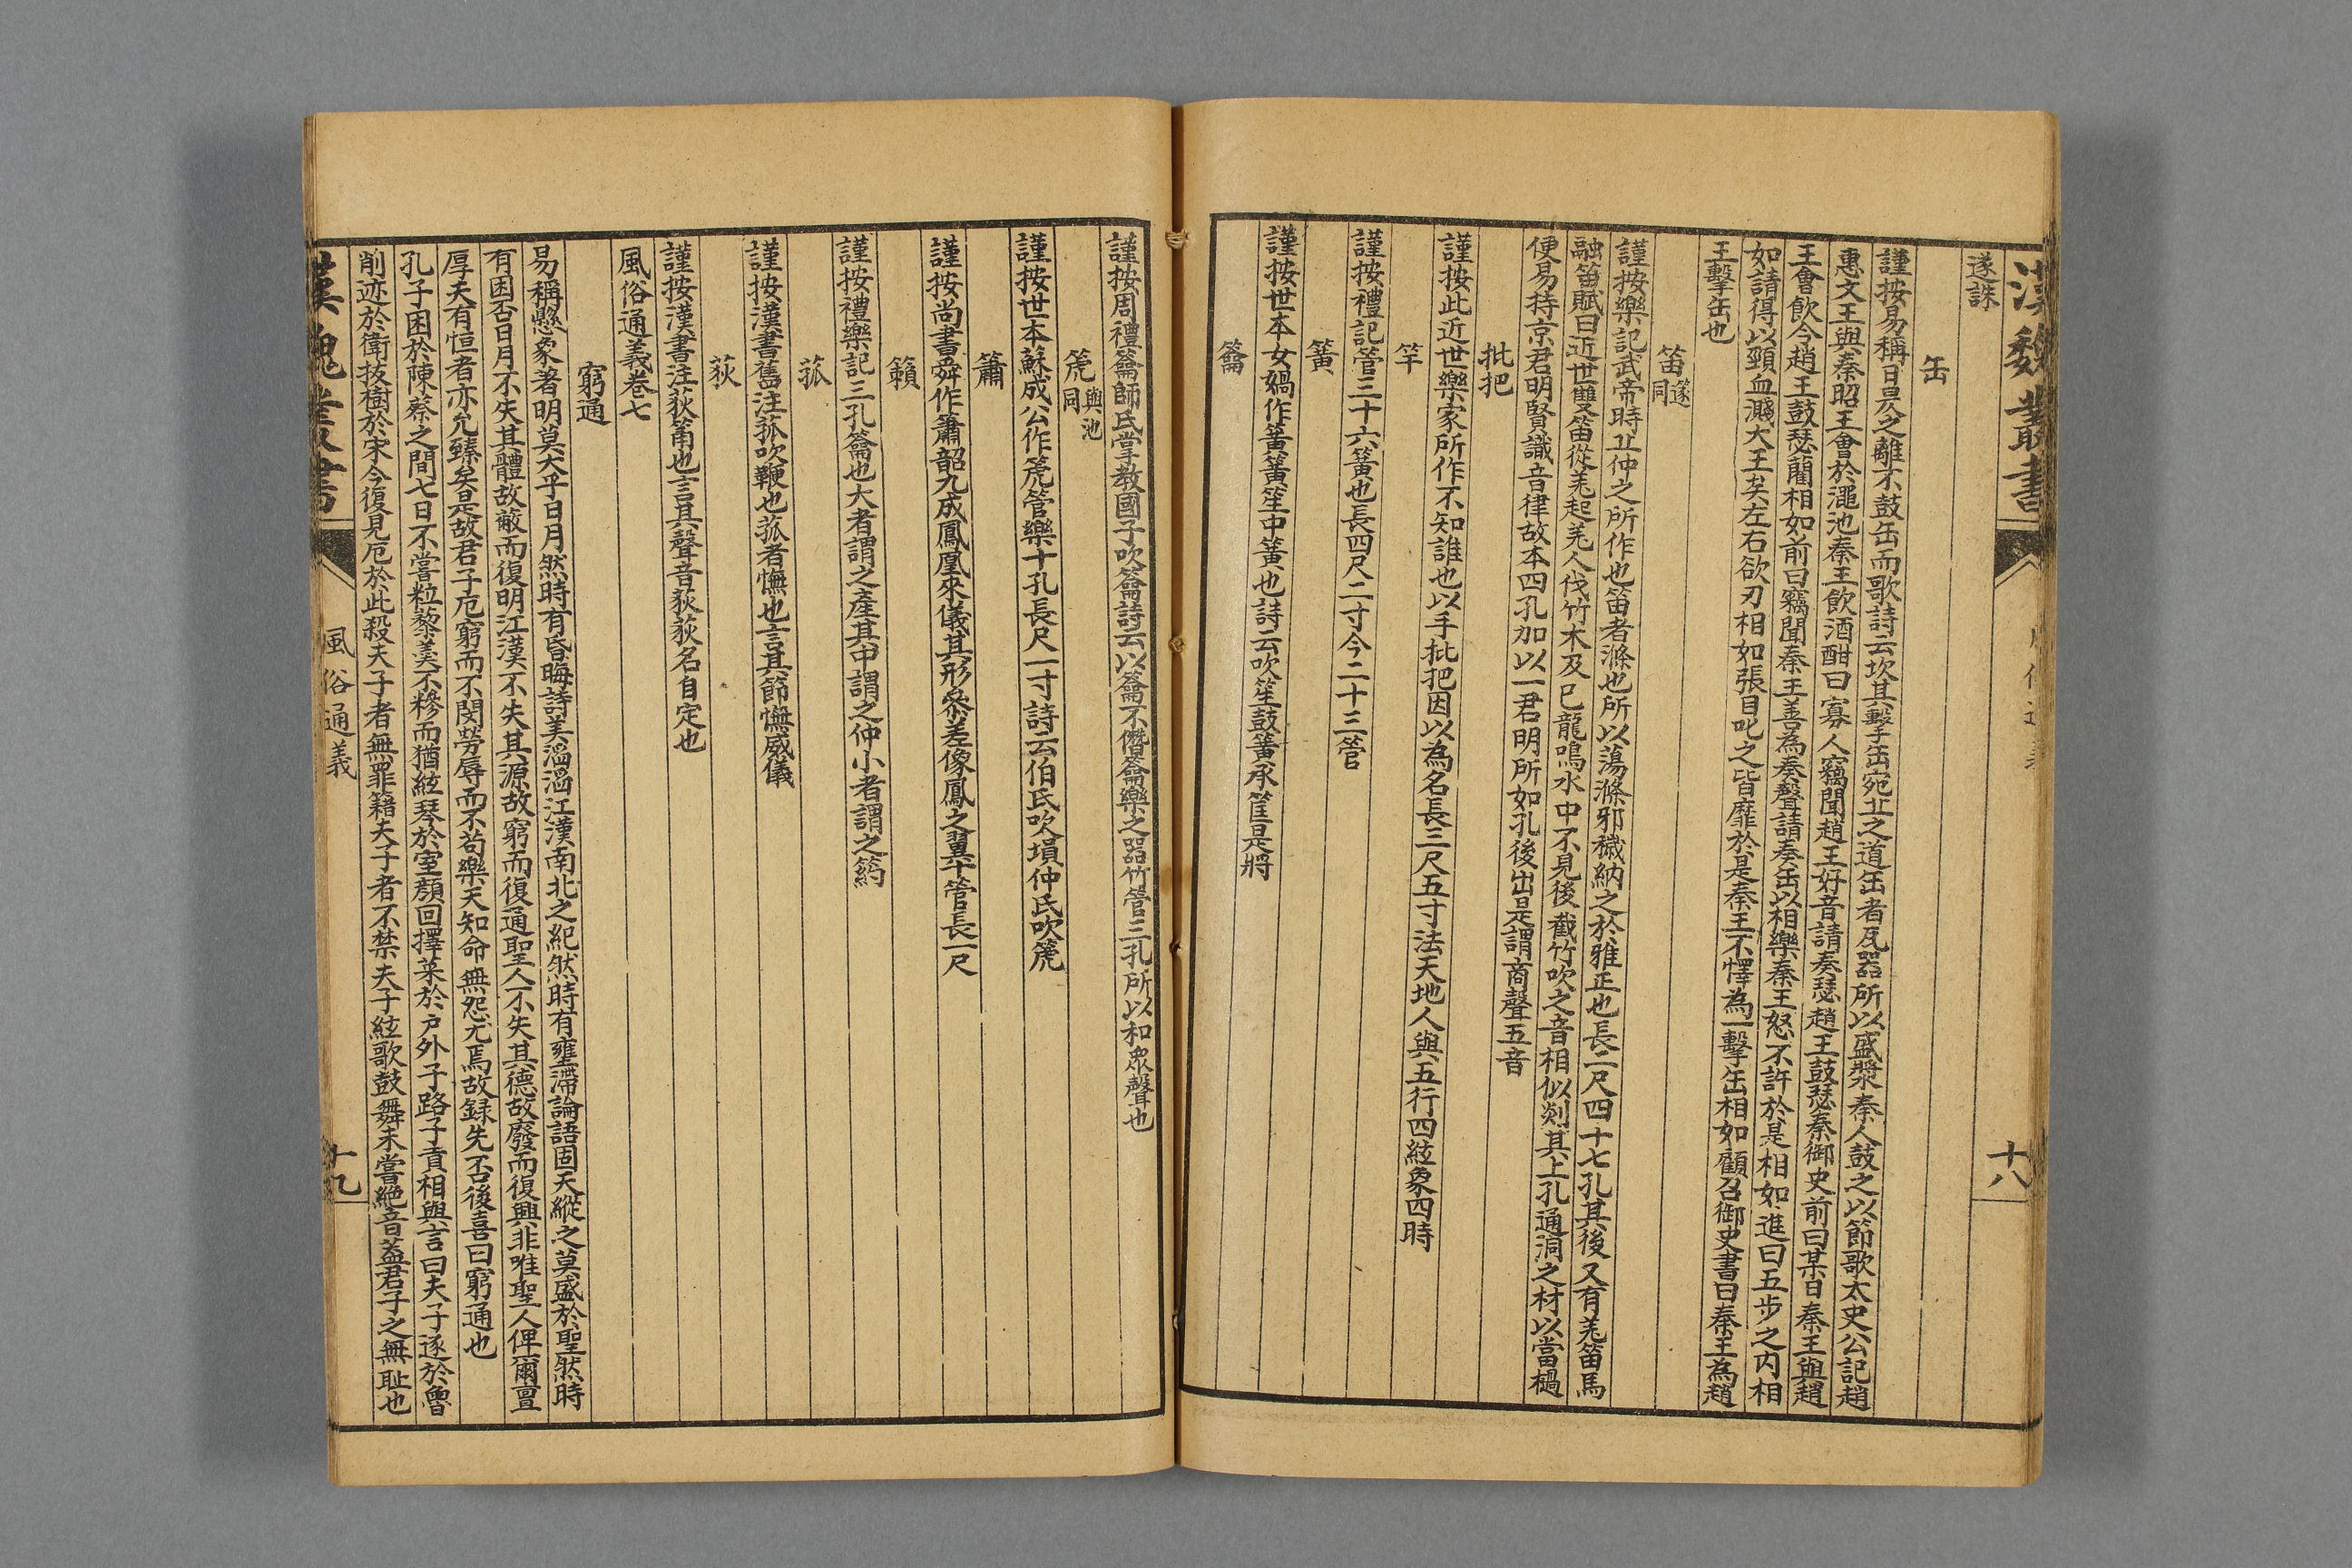 漢魏叢書
十八
遂誅
缶
謹按易稱日昃之離不鼓缶而歌詩云坎其擊缶宛丘之道缶者瓦器所以盛漿秦人鼓之以節歌太史公記趙
惠文王與秦昭王會於澠池秦王飲酒酣曰寡人竊聞趙王好音請奏瑟趙王鼓瑟秦御史前曰某日秦王與趙
王會飲令趙王鼓瑟藺相如前曰竊聞秦王善為秦聲請奏缶以相樂秦王怒不許於是相如進曰五步之内相
如請得以頸血濺大王矣左右欲刃相如張目叱之皆靡於是秦王不懌為一擊缶相如顧召御史書曰秦王為趙
王擊缶也
笛遂同
謹按樂記武帝時丘仲之所作也笛者滌也所以蕩滌邪穢納之於雅正也長二尺四寸七孔其後又有羌笛馬
融笛賦曰近世雙笛從羌起羌人伐竹木及已龍鳴水中不見後截竹吹之音相似剡其上孔通洞之材以當檛
便易持京君明賢識音律故本四孔加以一君明所如孔後出是謂商聲五音
批把
謹按此近世樂家所作不知誰也以手批把因以為名長三尺五寸法天地人與五行四絃象四時
竽
謹按禮記管三十六簧也長四尺二寸今二十三管
簧
謹按世本女媧作簧簧笙中簧也詩云吹笙鼓簧承筐是將
籥
謹按周禮籥師氏掌教國子吹籥詩云以籥不僭籥樂之器竹管三孔所以和眾聲也
箎與池同
謹按世本蘇成公作箎管樂十孔長尺一寸詩云伯氏吹塤仲氏吹箎
簫
謹按尚書舜作簫韶九成鳳凰來儀其形參差像鳳之翼十管長一尺
籟
謹按禮樂記三孔籥也大者謂之產其中謂之仲小者謂之箹
菰
謹按漢書舊注菰吹鞭也菰者憮也言其節憮威儀
荻
謹按漢書注荻筩也言其聲音荻荻名自定也
風俗通義卷七
窮通
易稱懸象著明莫大乎日月然時有昏晦詩美滔滔江漢南北之紀然時有壅滯論語固天縱之莫盛於聖然時
有困否日月不失其體故蔽而復明江漢不失其源故窮而復通聖人不失其德故廢而復興非唯聖人俾爾亶
厚夫有恒者亦允臻矣是故君子厄窮而不閔勞辱而不苟樂天知命無怨尤焉故録先否後喜曰窮通也
孔子困於陳蔡之間七日不嘗粒藜羹不糝而猶絃琴於室顏回擇菜於户外子路子貢相與言曰夫子逐於魯
削迹於衛拔樹於宋今復見厄於此殺夫子者無罪籍夫子者不禁夫子絃歌鼓舞未嘗絶音蓋君子之無恥也
漢魏叢書
風俗通義
十九